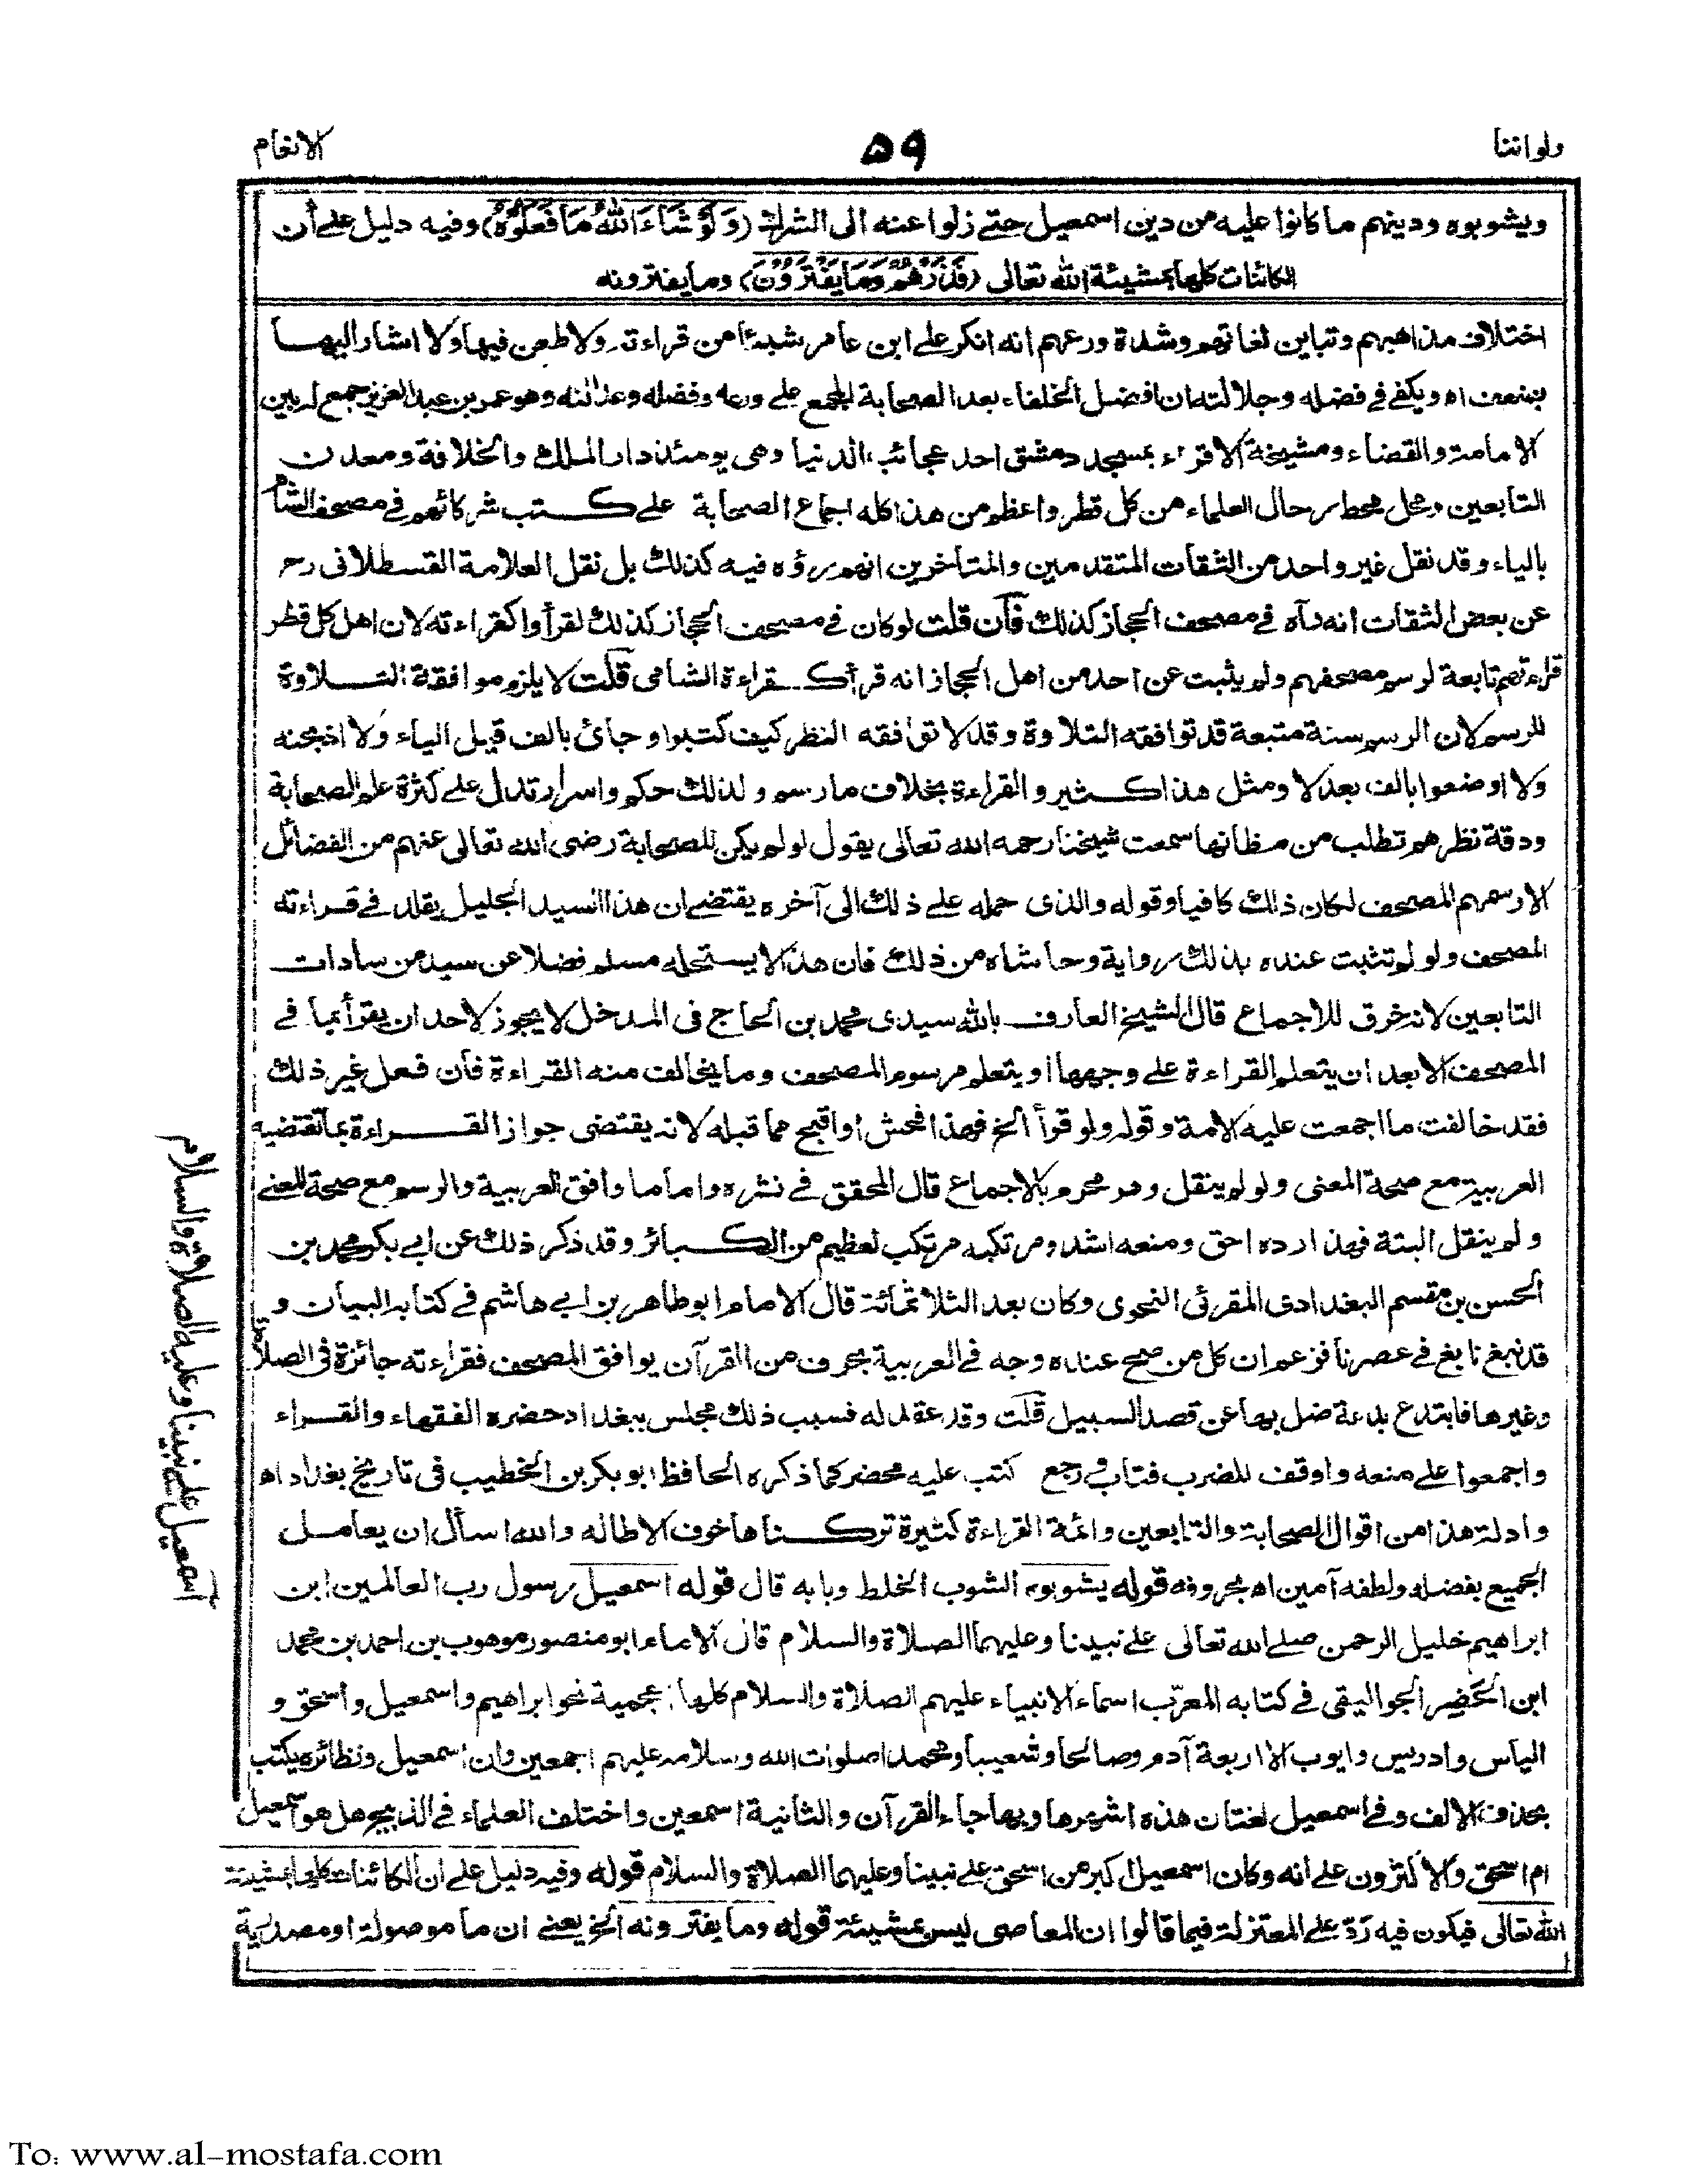 ولواننا
٥٩
الانعام
ويشوبوه ودينهم ما كانوا عليه من دين اسمعيل حتى زلوا عنه الى الشرك (وَلَوْ شَاءَ اللهُ مَا فَعَلُوْهُ) وفيه دليل على أن
الكائنات كلها بمشيئة الله تعالى (فَذَرْهُمْ وَمَا يَفْتَرُوْنَ) وما يفترونه
اختلاف مذاهبهم وتباين لغاتهم وشدة ورعهم انه انكر على ابن عامر شيئا من قراءته ولا طعن فيها ولا اشار اليها
بضعف اه ويكفى فى فضله وجلالته ان افضل الخلفاء بعد الصحابة المجمع على ورعه وفضله وعدالته وهو عمر بن عبد العزيز جمع له بين
الامامة والقضاء ومشيخة الاقراء بمسجد دمشق احد عجائب الدنيا وهى يومئذ دار الملك والخلافة ومعدن
التابعين ومحل محط رحال العلماء من كل قطر واعظم من هذا كله اجماع الصحابة على كتب شركائهم فى مصحف الشام
بالياء وقد نقل غير واحد من الثقات المتقدمين والمتأخرين انهم رؤه فيه كذلك بل نقل العلامة القسطلانى رح
عن بعض الثقات انه رآه فى مصحف الحجاز كذلك فأن قلت لو كان فى مصحف الحجاز كذلك لقرأوا كقراءته لان اهل كل قطر
قراءتهم تابعة لرسم مصحفهم ولم يثبت عن احد من اهل الحجاز انه قرأ كقراءة الشامى قلت لا يلزم موافقة التلاوة
للرسم لان الرسم سنة متبعة قد توافقه التلاوة وقد لا توافقه النظر كيف كتبوا وجائ بالف قبل الياء ولا اذبحنه
ولا اوضعوا بالف بعد لا ومثل هذا كثير والقراءة بخلاف ما رسم ولذلك حكم واسرار تدل على كثرة علم الصحابة
ودقة نظرهم تطلب من مظانها سمعت شيخنا رحمه الله تعالى يقول لو لم يكن للصحابة رضى الله تعالى عنهم من الفضائل
الا رسمهم المصحف لكان ذلك كافيا وقوله والذى حمله على ذلك الى آخره يقتضى ان هذا السيد الجليل يقلد فى قراءته
المصحف ولو لم تثبت عنده بذلك رواية وحاشاه من ذلك فان هذا لا يستحله مسلم فضلا عن سيد من سادات
التابعين لانه خرق للاجماع قال الشيخ العارف بالله سيدى محمد بن الحاج فى المدخل لا يجوز لاحد ان يقرأ بما فى
المصحف الا بعد ان يتعلم القراءة على وجهها او يتعلم مرسوم المصحف وما يخالف منه القراءة فأن فعل غير ذلك
فقد خالفت ما اجمعت عليه الامة وقوله ولو قرأ الخ فهذا افحش واقبح مما قبله لانه يقتضى جواز القراءة بما تقتضيه
العربية مع صحة المعنى ولو لم ينقل وهو محرم بالاجماع قال المحقق فى نشره واما ما وافق العربية والرسم مع صحة المعنى
ولم ينقل البتة فهذا رده احق ومنعه اشد ومرتكبه مرتكب لعظيم من الكبائر وقد ذكر ذلك عن ابى بكر محمد بن
الحسن بن مقسم البغدادى المقرئى النحوى وكان بعد الثلاثمائة قال الامام ابو طاهر بن ابى هاشم فى كتابه البيان و
قد نبغ نابغ فى عصرنا فزعم ان كل من صح عنده وجه فى العربية بحرف من القرآن يوافق المصحف فقراءته جائزة فى الصلاة
وغيرها فابتدع بدعة ضل بها عن قصد السبيل قلت وقد عقد له فسبب ذلك مجلس ببغداد حضره الفقهاء والقراء
واجمعوا على منعه واوقف للضرب فتاب ورجع كتب عليه محضر كما ذكره الحافظ ابو بكر بن الخطيب فى تاريخ بغداد اه
وادلة هذا من اقوال الصحابة والتابعين وائمة القراءة كثيرة تركناها خوف الاطاله والله اسأل ان يعامل
الجميع بفضله ولطفه آمين اه بحروفه قوله يشوبوه الشوب الخلط وبابه قال قوله اسمعيل رسول رب العالمين ابن
ابراهيم خليل الرحمن صلى الله تعالى على نبينا وعليهما الصلاة والسلام قال الامام ابو منصور موهوب بن احمد بن محمد
ابن الخضر الجواليقى فى كتابه المعرّب اسماء الانبياء عليهم الصلاة والسلام كلها عجمية نحو ابراهيم واسمعيل واسحق و
الياس وادريس وايوب الا اربعة آدم وصالحا وشعيبا ومحمدا صلوات الله وسلامه عليهم اجمعين وان اسمعيل ونظائره يكتب
بحذف الالف وفى اسمعيل لغتان هذه اشهرها وبها جاء القرآن والثانية اسمعين واختلف العلماء فى الذبيح هل هو اسمعيل
ام اسحق والاكثرون على انه وكان اسمعيل اكبر من اسحق على نبينا وعليهما الصلاة والسلام قوله وفيه دليل على ان الكائنات كلها بمشيئة
الله تعالى فيكون فيه رَدّ على المعتزلة فيما قالوا ان المعاصى ليس بمشيئة قوله وما يفترونه الخ يعنى ان ما موصولة او مصدرية
اسمعيل على نبينا وعليه الصلاة والسلام
To: www.al-mostafa.com